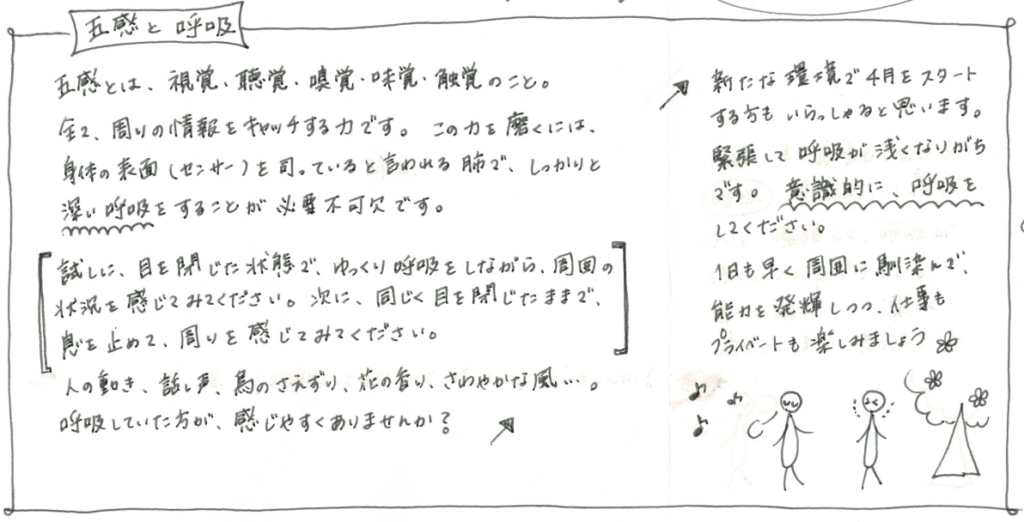 五感と呼吸
五感とは、視覚・聴覚・嗅覚・味覚・触覚のこと。
全て、周りの情報をキャッチする力です。この力を磨くには、
身体の表面(センサー)を司っていると言われる肺で、しっかりと
深い呼吸をすることが必要不可欠です。
試しに、目を閉じた状態で、ゆっくり呼吸をしながら、周囲の
状況を感じてみてください。次に、同じく目を閉じたままで、
息を止めて、周りを感じてみてください。
人の動き、話し声、鳥のさえずり、花の香り、さわやかな風…。
呼吸していた方が、感じやすくありませんか?
新たな環境で4月をスタート
する方もいらっしゃると思います。
緊張して呼吸が浅くなりがち
です。意識的に、呼吸を
してください。
1日も早く周囲に馴染んで、
能力を発揮しつつ、仕事も
プライベートも楽しみましょう